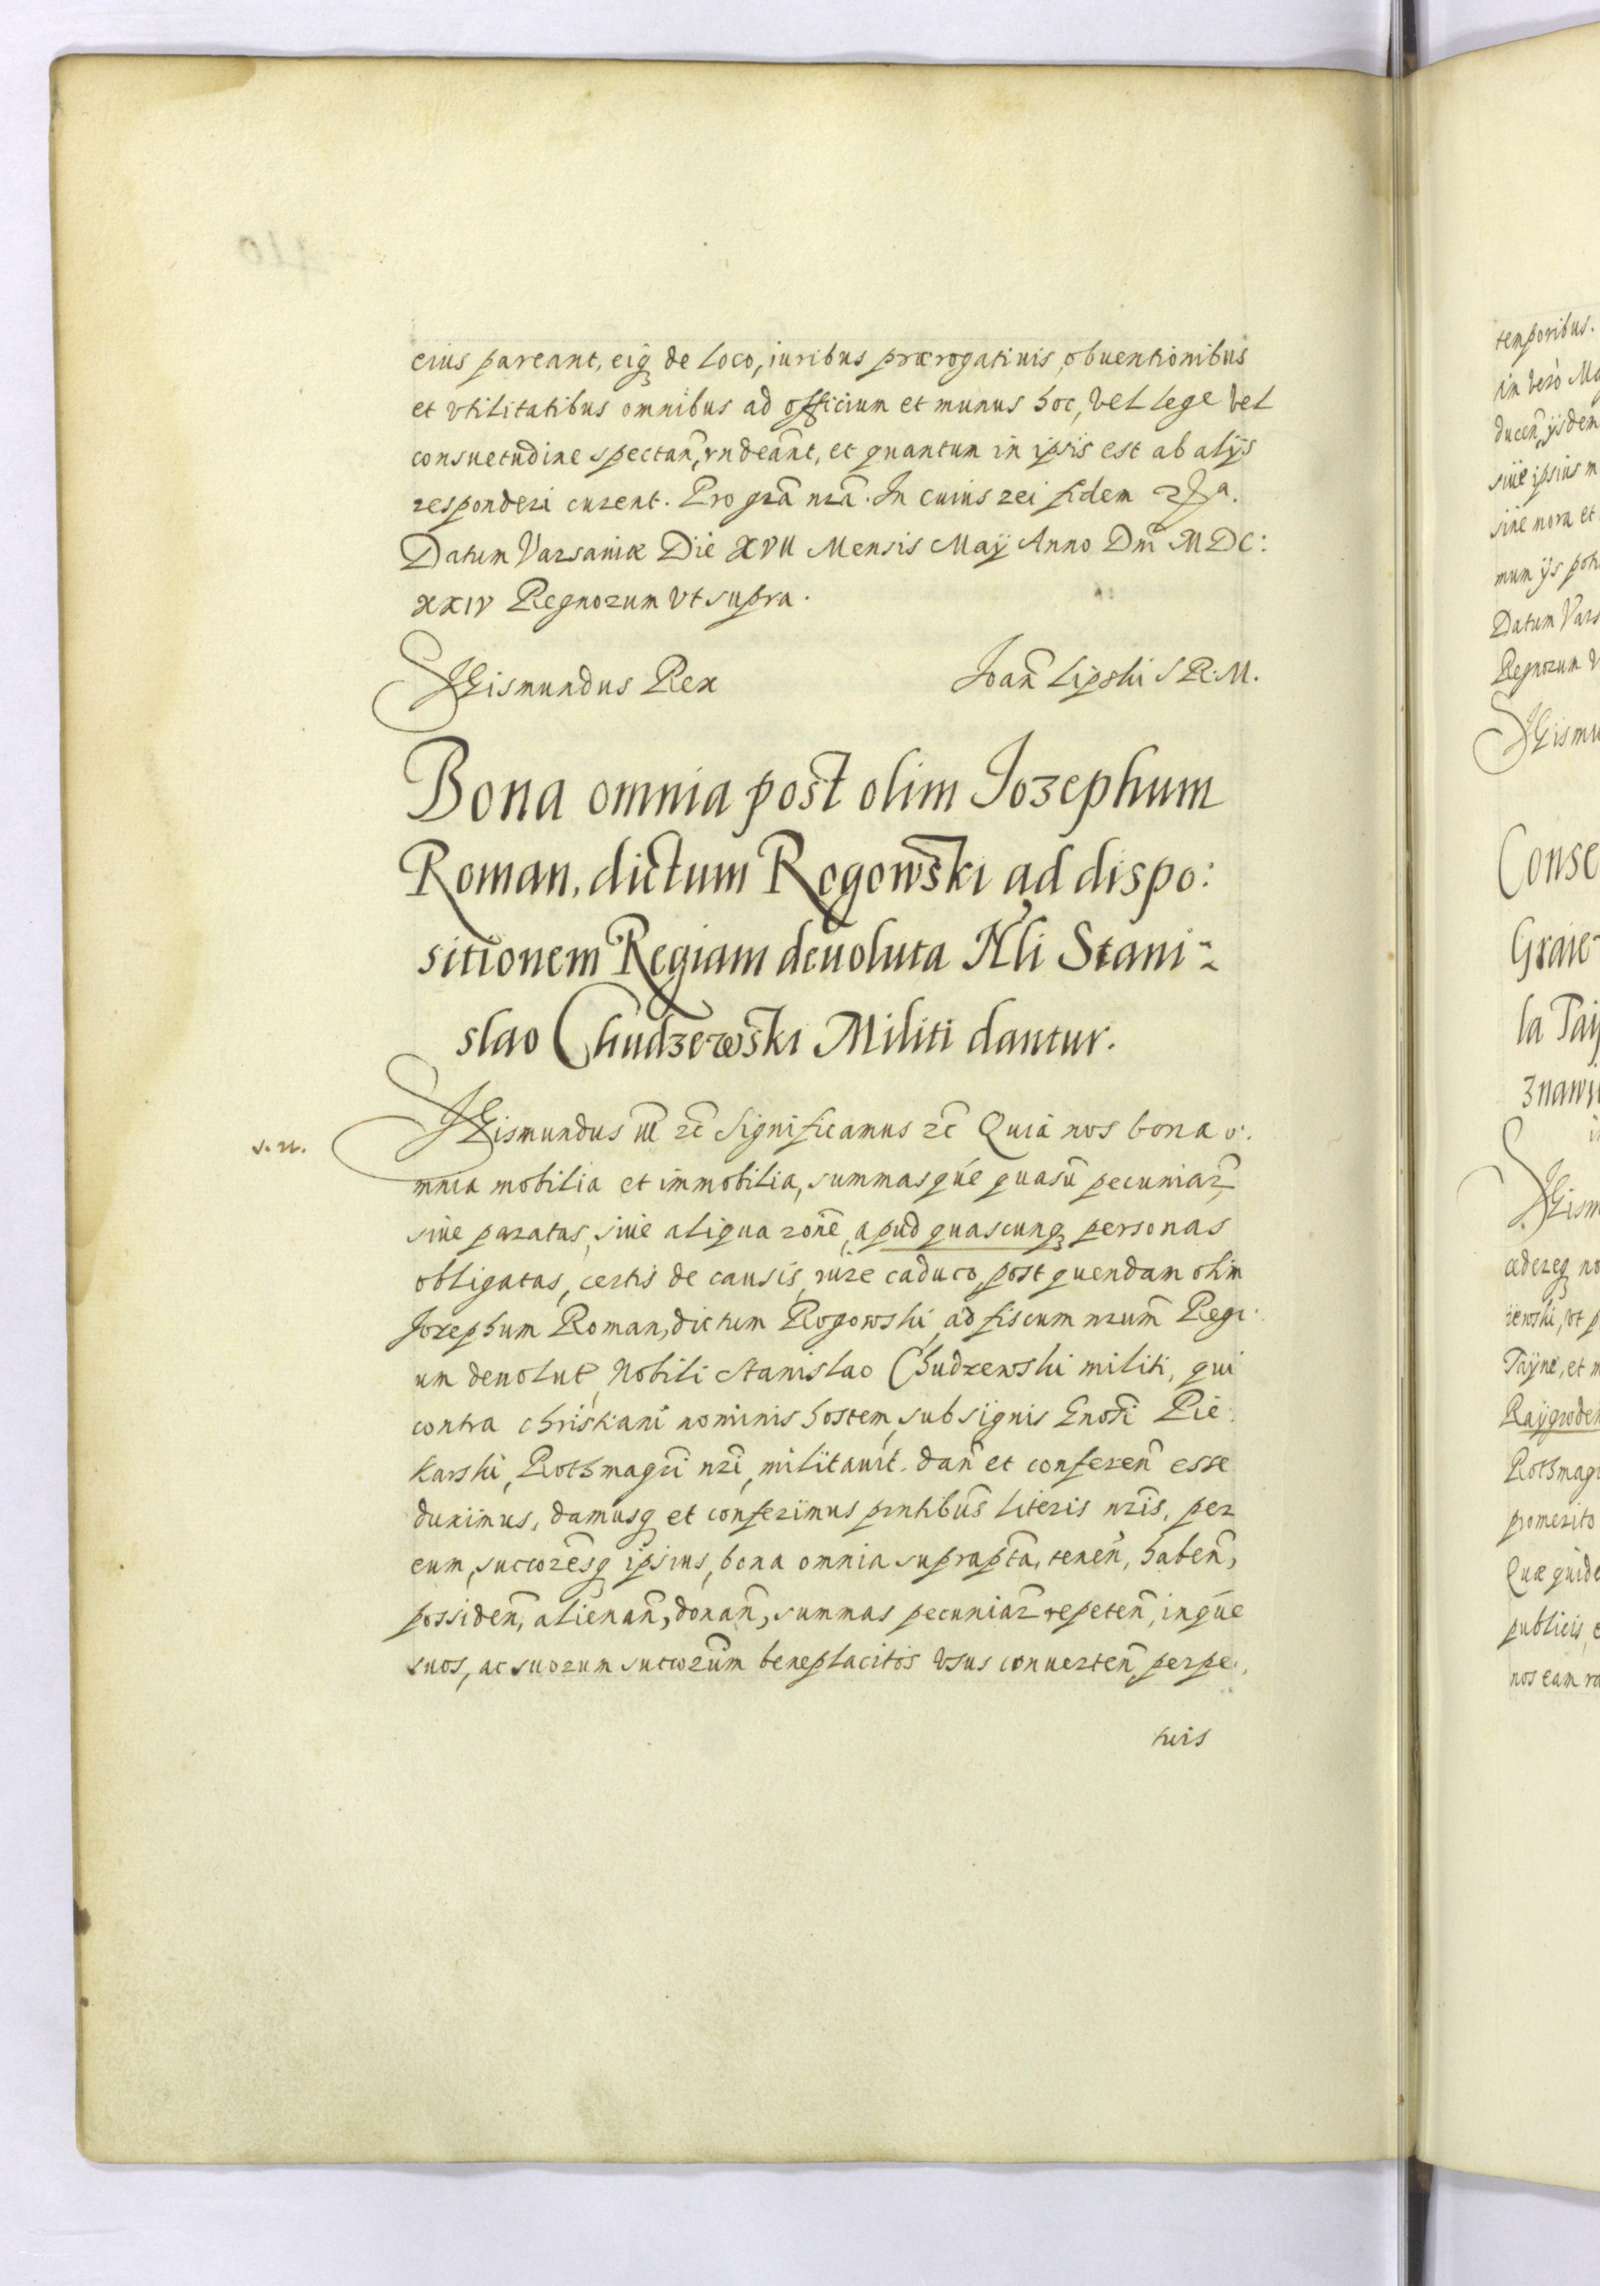 eius pareant, eiq; de loco, iuribus prærogatiuis, obuentionibus
et vtilitatibus omnibus ad officium et munus hoc, vel lege vel
consuetudine spectan̄, rn̄deant, et quantum in ipsis est ab alijs
responderi curent. Pro gr̄a nr̄a. In cuius rei fidem
Datum Varsauiæ Die XVII Mensis Maij Anno Dn̄i MDC:
XXIV Regnorum vt supra.
Sigismundus Rex
Joan̄ Lipski S R. M.
Bona omnia post olim Iozephum
Roman, dictum Rogowski ad dispo:
sitionem Regiam deuoluta Nli Stani-
slao Chudzewski Militi dantur.
s. n.
Sigismundus III etc̄ Significamus etc̄ Quia nos bona o:
mnia mobilia et immobilia, summasque quasuis pecuniar̄
siue paratas, siue aliqua rōne, apud quascunq; personas
obligatas, certis de causis, iure caduco, post quendam olim
Jozephum Roman, dictum Rogowski, ad fiscum nrum̄ Regi:
um deuolut, Nobili Stanislao Chudzewski militi, qui
contra christiani nominis hostem, sub signis Gnosi Pie:
karski, Rothmagri nri, militauit. dan̄ et conferen̄ esse
duximus, damusq; et conferimus pn̄tibus literis nr̄is, per
eum, succoresq; ipsius, bona omnia suprapta, tenen̄, haben̄,
possiden̄, alienan̄, donan̄, summas pecuniar̄ repeten̄, inque
suos, ac suorum succorum̄ beneplacitos vsus conuerten̄, perpe:
tuis
temporibus.
in vero Ma
ducen̄, ijsdem
siue ipsius m
sine mora et
mum ijs
Datum Vars
Regnorum v
Sigismu
Conse
Graie-
la Taij
znawi
Sigism
Taijne, et m
Raijgroden
Rothmagr
promerito
Quæ quide
publicis, e
nos eam ra